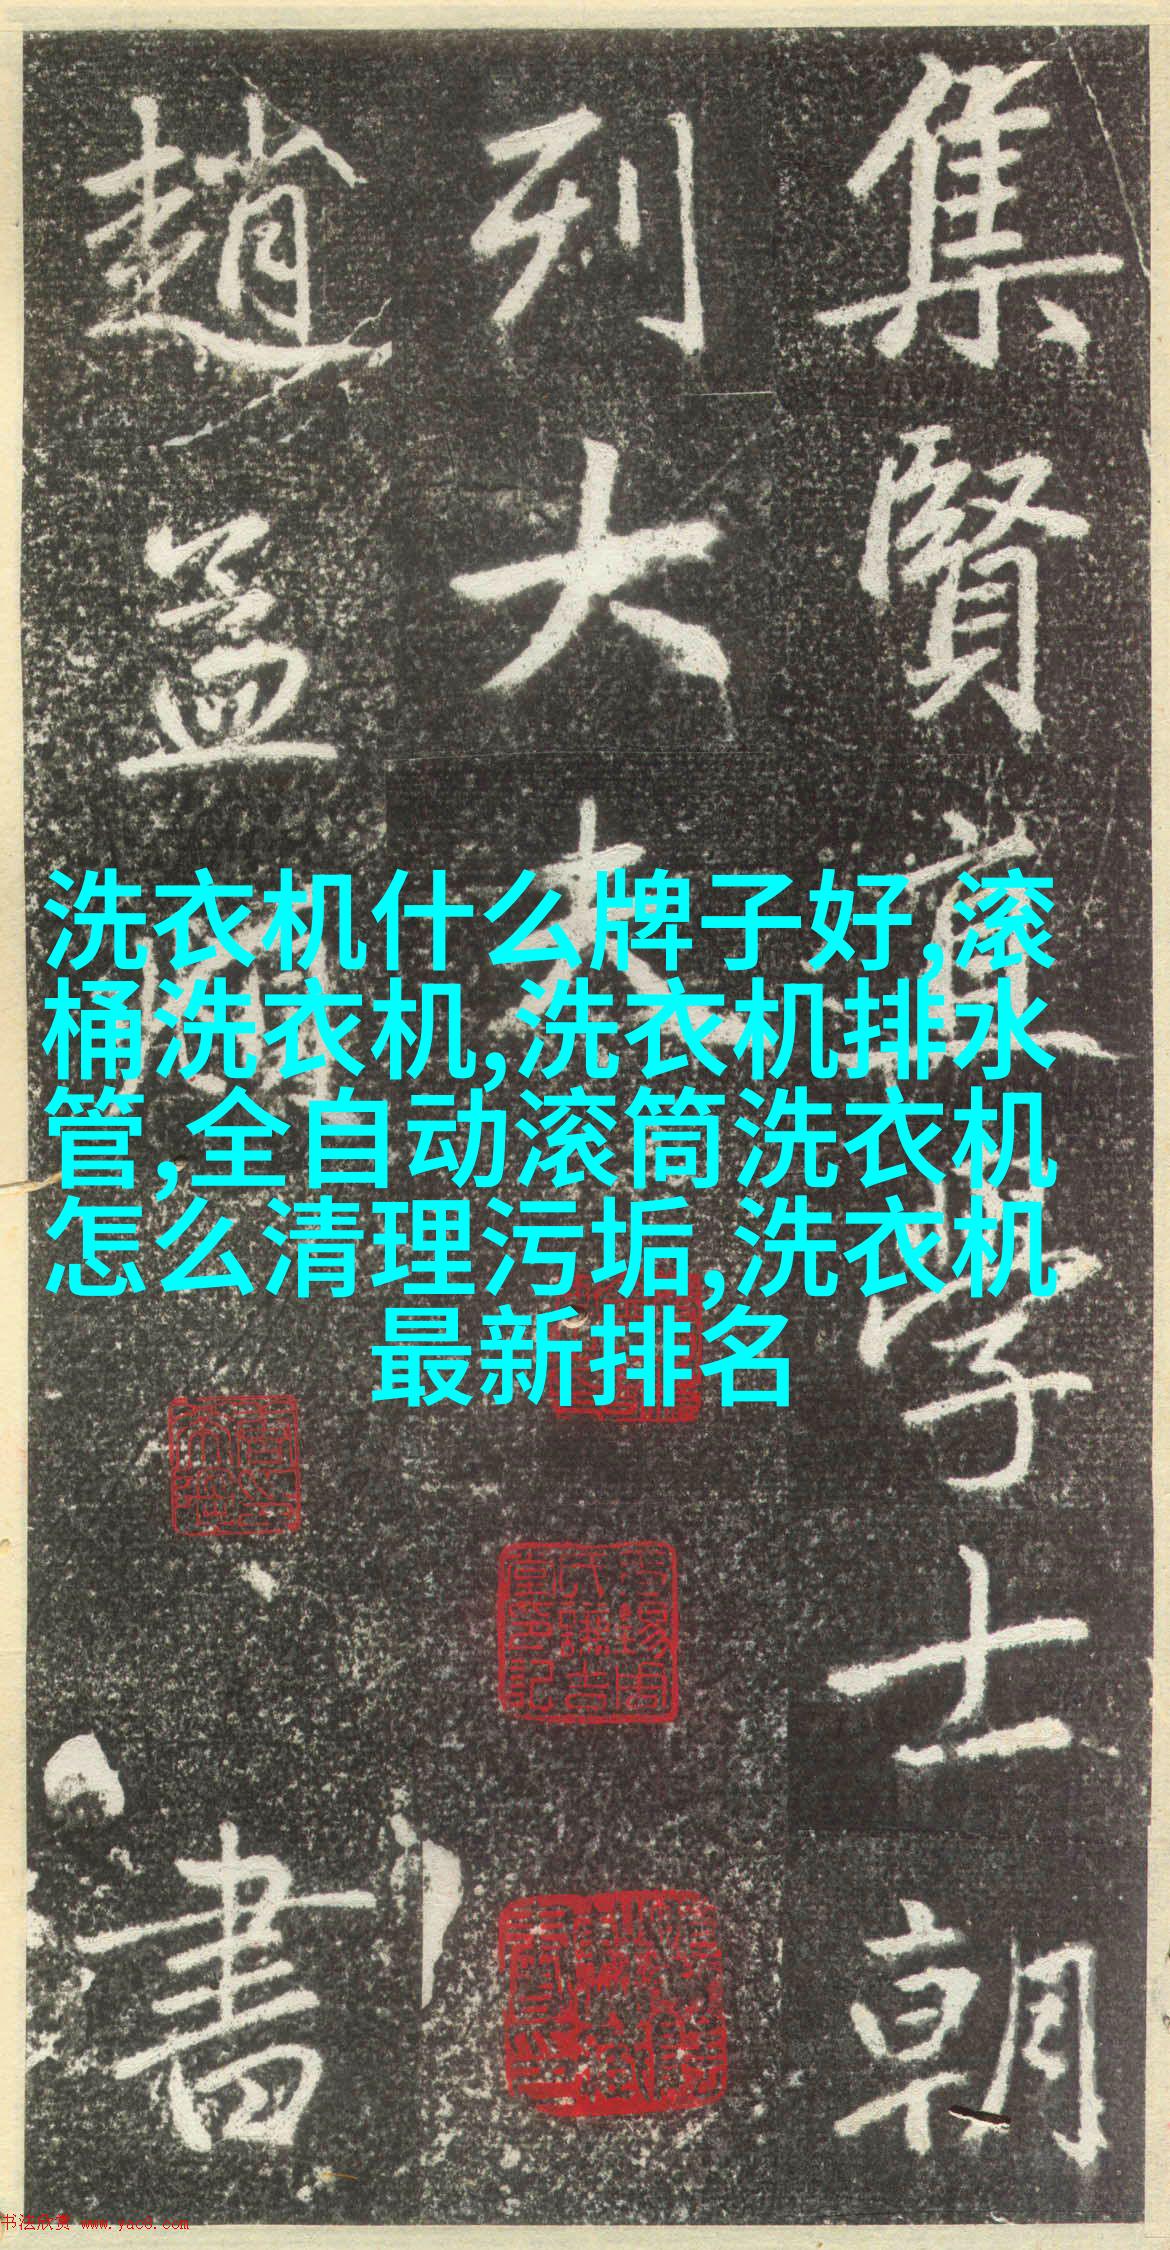 集賢直學士朝
列大夫
趙孟頫書
洗衣机什么牌子好,滚
桶洗衣机,洗衣机排水
管,全自动滚筒洗衣机
怎么清理污垢,洗衣机
最新排名
书法欣赏 www.yac8.com